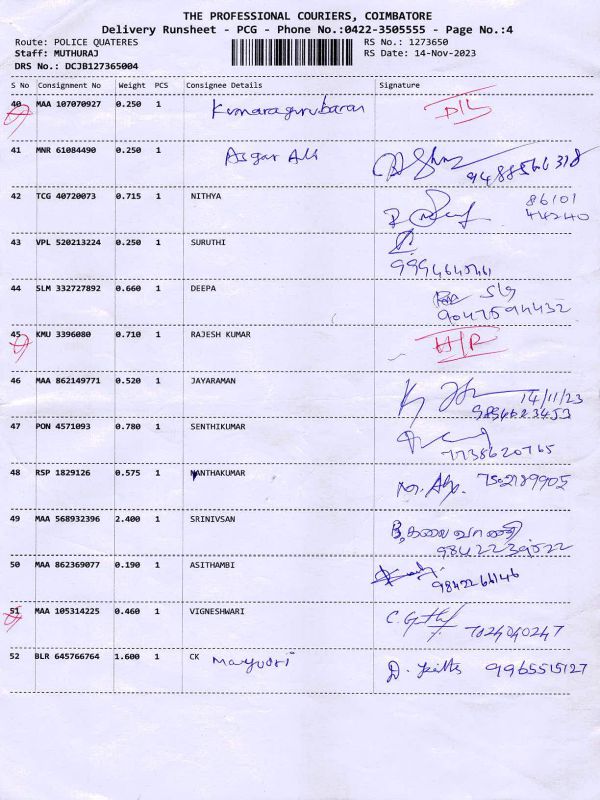 THE PROFESSIONAL COURIERS, COIMBATORE
Delivery Runsheet - PCG - Phone No.:0422-3505555 - Page No.:4
Route: POLICE QUATERES RS No.: 1273650
Staff: MUTHURAJ RS Date: 14-Nov-2023
DRS No.: DCJB127365004
S No Consignment No Weight PCS Consignee Details Signature
40 MAA 107070927 0.250 1 Kumaragurubaran D/L
41 MNR 61084490 0.250 1 Asgar Ali
42 TCG 40720073 0.715 1 NITHYA 86101
44240
43 VPL 520213224 0.250 1 SURUTHI
44 SLM 332727892 0.660 1 DEEPA
9047594432
45 KMU 3396080 0.710 1 RAJESH KUMAR H/R
46 MAA 862149771 0.520 1 JAYARAMAN 14/11/23
9894623453
47 PON 4571093 0.780 1 SENTHIKUMAR
7738620765
48 RSP 1829126 0.575 1 NANTHAKUMAR 7502189905
49 MAA 568932396 2.400 1 SRINIVSAN B.கலைவாணி
50 MAA 862369077 0.190 1 ASITHAMBI
9842266146
51 MAA 105314225 0.460 1 VIGNESHWARI
7024040247
52 BLR 645766764 1.600 1 CK Mayuori D. 9965515127